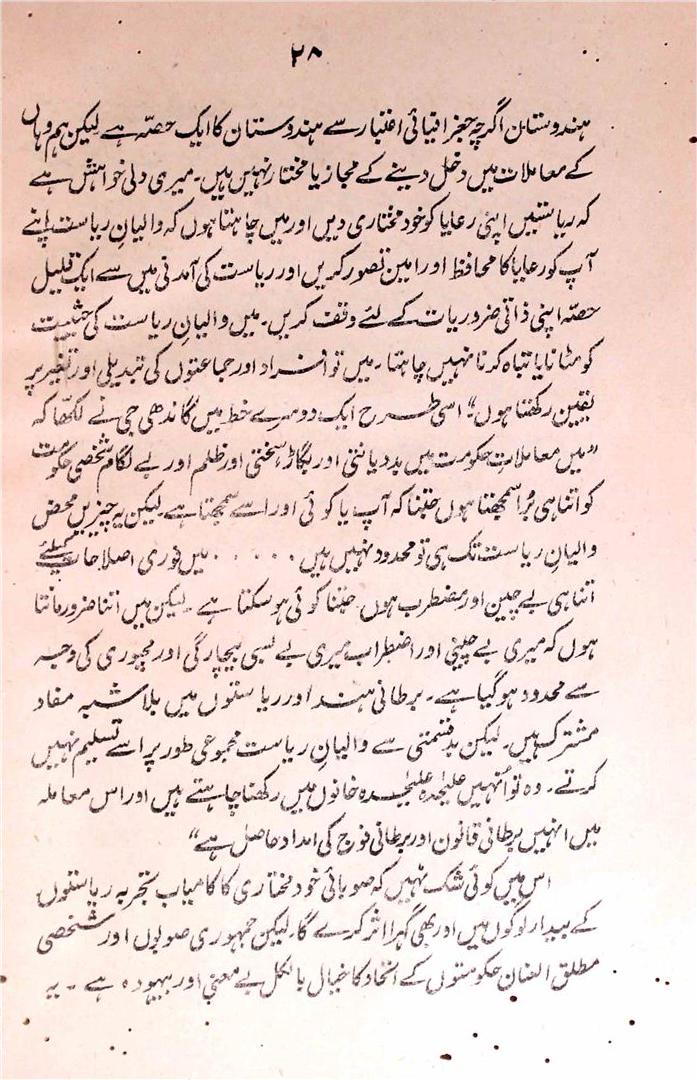 ۲۸
ہندوستان اگرچہ جغرافیائی اعتبار سے ہندوستان کا ایک حصّہ ہے لیکن ہم وہاں
کے معاملات میں دخل دینے کے مجاز یا مختار نہیں ہیں۔ میری دلی خواہش ہے
کہ ریاستیں اپنی رعایا کو خود مختاری دیں اور میں چاہتا ہوں کہ والیانِ ریاست اپنے
آپ کو رعایا کا محافظ اور امین تصور کریں اور ریاست کی آمدنی میں سے ایک قلیل
حصّہ اپنی ذاتی ضروریات کے لئے وقف کریں۔ میں والیانِ ریاست کی حیثیت
کو مٹانا یا تباہ کرنا نہیں چاہتا۔ میں تو افراد اور جماعتوں کی تبدیلی اور تغیر پر
یقین رکھتا ہوں“ اسی طرح ایک دوسرے خط میں گاندھی جی نے لکھّا کہ
”میں معاملاتِ حکومت میں بددیانتی اور بگاڑ، سختی اور ظلم اور بے لگام شخصی حکومت
کو اتنا ہی بُرا سمجھتا ہوں جتنا کہ آپ یا کوئی اور اسے سمجھتا ہے۔ لیکن یہ چیزیں محض
والیانِ ریاست تک ہی تو محدود نہیں ہیں . . . . . میں فوری اصلاحات کیلئے
اتنا ہی بے چین اور مضطرب ہوں جتنا کوئی ہو سکتا ہے۔ لیکن میں اتنا ضرور مانتا
ہوں کہ میری بے چینی اور اضطراب میری بے بسی بیچارگی اور مجبوری کی وجہ
سے محدود ہو گیا ہے۔ برطانی ہند اور ریاستوں میں بلاشبہ مفاد
مشترک ہیں۔ لیکن بدقسمتی سے والیانِ ریاست مجموعی طور پر اسے تسلیم نہیں
کرتے۔ وہ تو انہیں علیٰحدہ علیٰحدہ خانوں میں رکھنا چاہتے ہیں اور اس معاملہ
میں انہیں برطانی قانون اور برطانی فوج کی امداد حاصل ہے“
اس میں کوئی شک نہیں کہ صوبائی خود مختاری کا کامیاب تجربہ ریاستوں
کے بیدار لوگوں میں اور بھی گہرا اثر کرے گا۔ لیکن جمہوری صوبوں اور شخصی
مطلق العنان حکومتوں کے اتحاد کا خیال بالکل بے معنی اور بیہودہ ہے۔ یہ